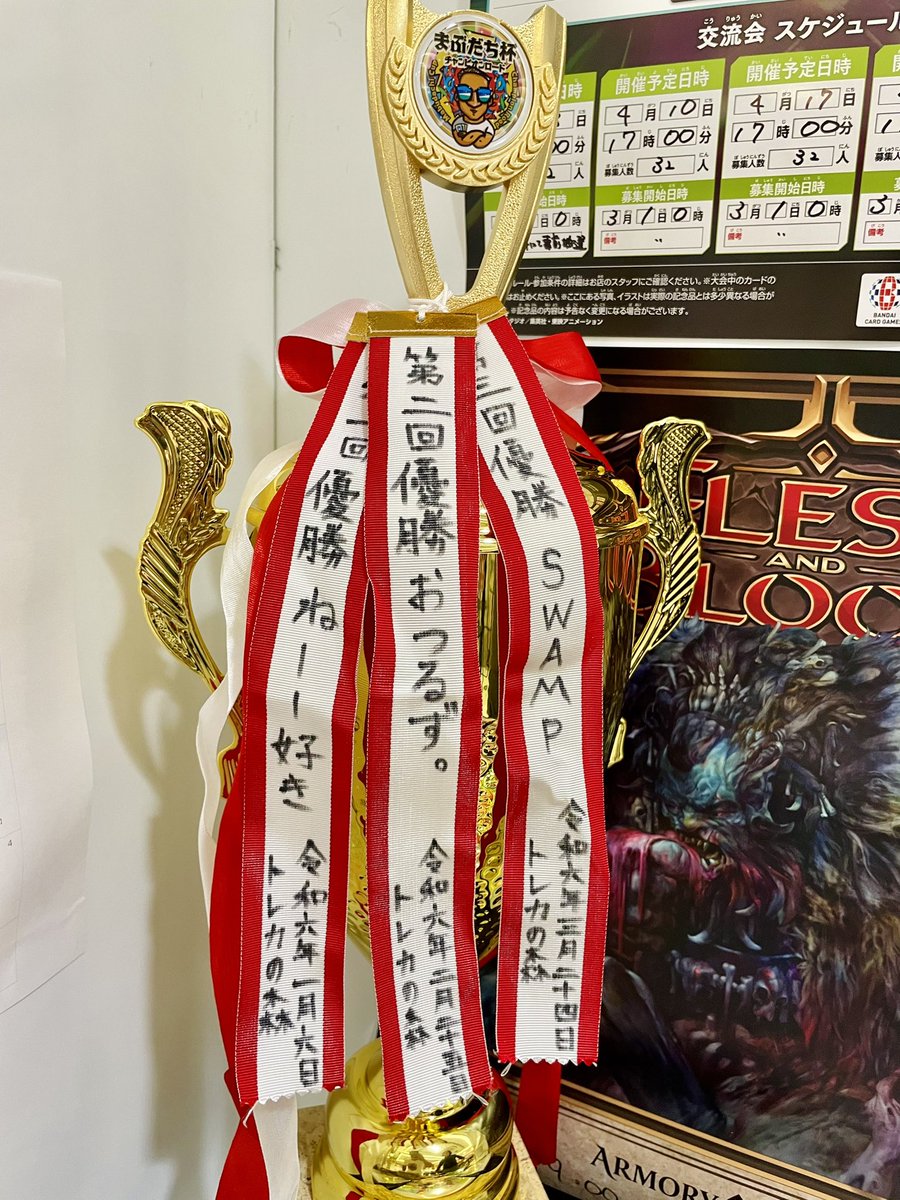 まぶだち杯
チャンピオンロード
交流会 スケジュール
開催予定日時
4月10日
17時00分
募集人数 32人
募集開始日時
3月1日0時
備考 〃
開催予定日時
4月17日
17時00分
募集人数 32人
募集開始日時
3月1日0時
備考 〃
ルール・参加条件の詳細はお店のスタッフにご確認ください。※大会中のカードの
はお止めください。※ここにある写真、イラストは実際の記念品とは多少異なる場合が
※記念品の内容は予告なく変更になる場合がございます。
タジオ／集英社・東映アニメーション
BANDAI
CARD GAMES
回優勝 ねーー好き
令和六年一月六日
トレカの森
第二回優勝 おつるず。
令和六年二月二十五日
トレカの森
三回優勝 SWAMP
令和六年三月二十四日
トレカの森
FLES
AND
BLOO
ARMORY